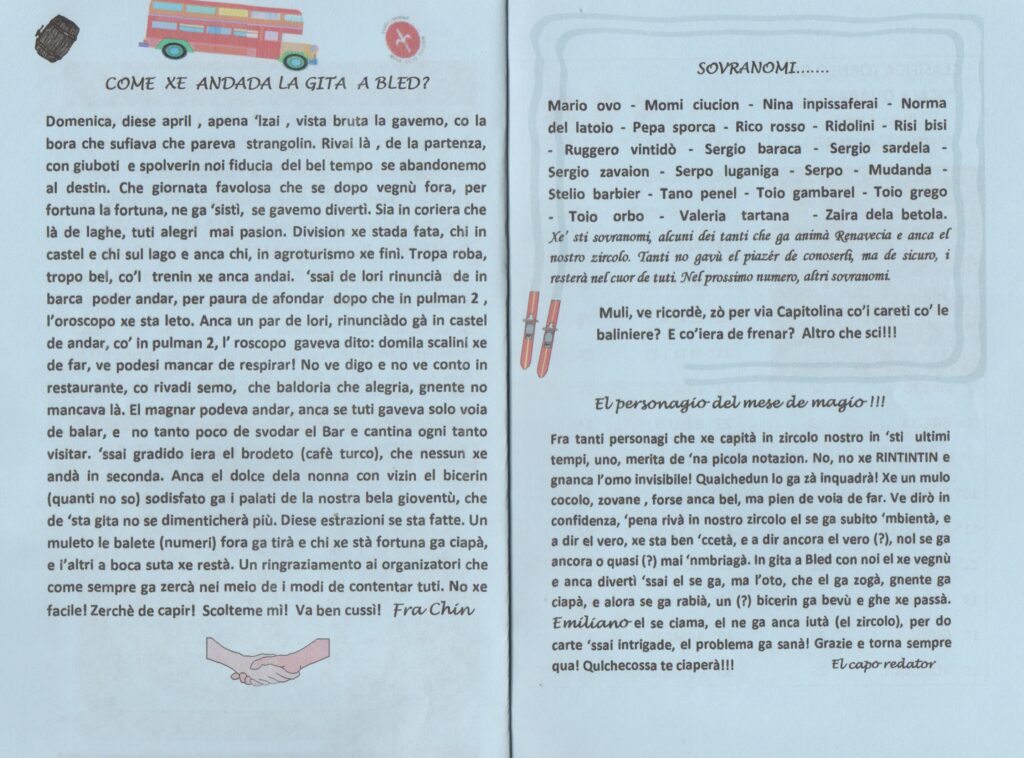 COME XE ANDADA LA GITA A BLED?
Domenica, diese april , apena ‘lzai , vista bruta la gavemo, co la
bora che sufiava che pareva strangolin. Rivai là , de la partenza,
con giuboti e spolverin noi fiducia del bel tempo se abandonemo
al destin. Che giornata favolosa che se dopo vegnù fora, per
fortuna la fortuna, ne ga ‘sistì, se gavemo divertì. Sia in coriera che
là de laghe, tuti alegri mai pasion. Division xe stada fata, chi in
castel e chi sul lago e anca chi, in agroturismo xe finì. Tropa roba,
tropo bel, co’l trenin xe anca andai. ‘ssai de lori rinuncià de in
barca poder andar, per paura de afondar dopo che in pulman 2 ,
l’oroscopo xe sta leto. Anca un par de lori, rinunciàdo gà in castel
de andar, co’ in pulman 2, l’ roscopo gaveva dito: domila scalini xe
de far, ve podesi mancar de respirar! No ve digo e no ve conto in
restaurante, co rivadi semo, che baldoria che alegria, gnente no
mancava là. El magnar podeva andar, anca se tuti gaveva solo voia
de balar, e no tanto poco de svodar el Bar e cantina ogni tanto
visitar. ‘ssai gradido iera el brodeto (cafè turco), che nessun xe
andà in seconda. Anca el dolce dela nonna con vizin el bicerin
(quanti no so) sodisfato ga i palati de la nostra bela gioventù, che
de ‘sta gita no se dimenticherà più. Diese estrazioni se sta fatte. Un
muleto le balete (numeri) fora ga tirà e chi xe stà fortuna ga ciapà,
e i’altri a boca suta xe restà. Un ringraziamento ai organizatori che
come sempre ga zercà nei meio de i modi de contentar tuti. No xe
facile! Zerchè de capir! Scolteme mi! Va ben cussì! Fra Chin
SOVRANOMI…….
Mario ovo - Momi ciucion - Nina inpissaferai - Norma
del latoio - Pepa sporca - Rico rosso - Ridolini - Risi bisi
- Ruggero vintidò - Sergio baraca - Sergio sardela -
Sergio zavaion - Serpo luganiga - Serpo - Mudanda -
Stelio barbier - Tano penel - Toio gambarel - Toio grego
- Toio orbo - Valeria tartana - Zaira dela betola.
Xe’ sti sovranomi, alcuni dei tanti che ga animà Renavecia e anca el
nostro zircolo. Tanti no gavù el piazér de conoserli, ma de sicuro, i
resterà nel cuor de tuti. Nel prossimo numero, altri sovranomi.
Muli, ve ricordè, zò per via Capitolina co’i careti co’ le
baliniere? E co’iera de frenar? Altro che sci!!!
El personagio del mese de magio !!!
Fra tanti personagi che xe capità in zircolo nostro in ‘sti ultimi
tempi, uno, merita de ‘na picola notazion. No, no xe RINTINTIN e
gnanca l’omo invisibile! Qualchedun lo ga zà inquadrà! Xe un mulo
cocolo, zovane , forse anca bel, ma pien de voia de far. Ve dirò in
confidenza, ‘pena rivà in nostro zircolo el se ga subito ‘mbientà, e
a dir el vero, xe sta ben ‘ccetà, e a dir ancora el vero (?), nol se ga
ancora o quasi (?) mai ‘nmbriagà. In gita a Bled con noi el xe vegnù
e anca divertì ‘ssai el se ga, ma l’oto, che el ga zogà, gnente ga
ciapà, e alora se ga rabià, un (?) bicerin ga bevù e ghe xe passà.
Emiliano el se ciama, el ne ga anca iutà (el zircolo), per do
carte ‘ssai intrigade, el problema ga sanà! Grazie e torna sempre
qua! Qulchecossa te ciaperà!!! El capo redator